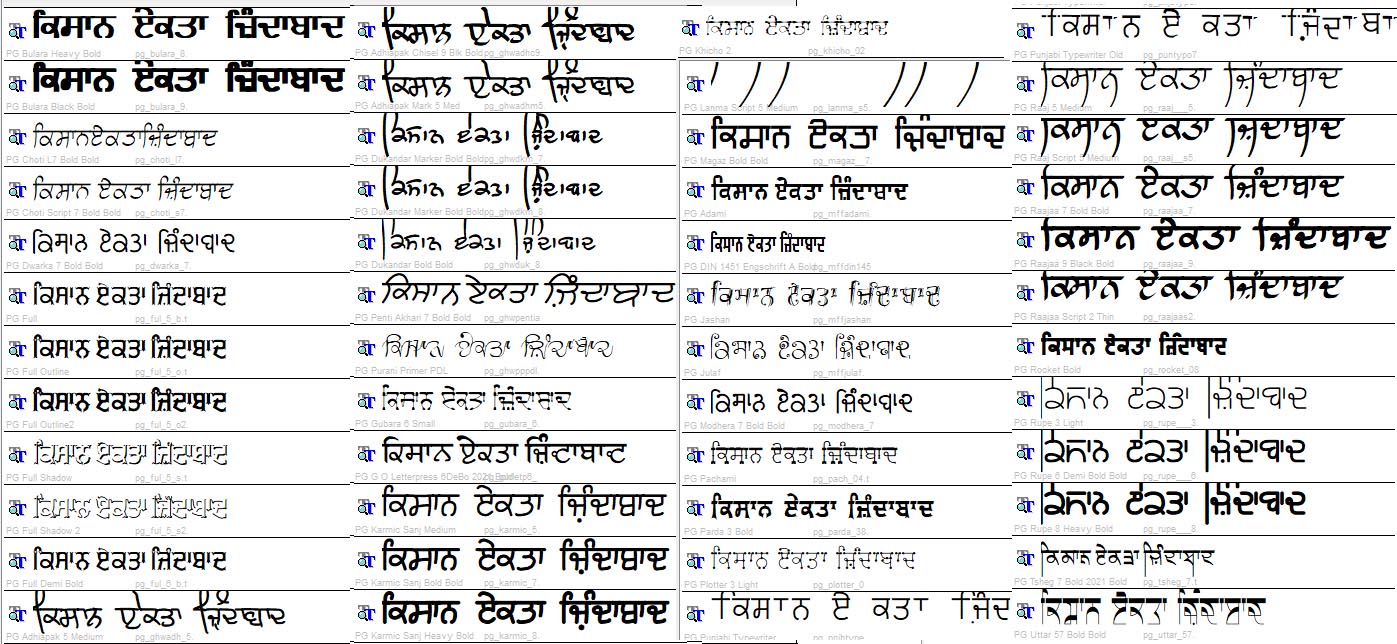 ਕਿਸਾਨ ਏਕਤਾ ਜ਼ਿੰਦਾਬਾਦ
PG Bulara Heavy Bold pg_bulara_8.
ਕਿਸਾਨ ਏਕਤਾ ਜ਼ਿੰਦਾਬਾਦ
PG Bulara Black Bold pg_bulara_9.
ਕਿਸਾਨਏਕਤਾਜ਼ਿੰਦਾਬਾਦ
PG Choti L7 Bold Bold pg_choti_l7.
ਕਿਸਾਨ ਏਕਤਾ ਜ਼ਿੰਦਾਬਾਦ
PG Choti Script 7 Bold Bold pg_choti_s7.
ਕਿਸਾਨ ਏਕਤਾ ਜ਼ਿੰਦਾਬਾਦ
PG Dwarka 7 Bold Bold pg_dwarka_7.
ਕਿਸਾਨ ਏਕਤਾ ਜ਼ਿੰਦਾਬਾਦ
PG Full pg_ful_5_b.t
ਕਿਸਾਨ ਏਕਤਾ ਜ਼ਿੰਦਾਬਾਦ
PG Full Outline pg_ful_5_o.t
ਕਿਸਾਨ ਏਕਤਾ ਜ਼ਿੰਦਾਬਾਦ
PG Full Outline2 pg_ful_5_o2.
ਕਿਸਾਨ ਏਕਤਾ ਜ਼ਿੰਦਾਬਾਦ
PG Full Shadow pg_ful_5_s.t
ਕਿਸਾਨ ਏਕਤਾ ਜ਼ਿੰਦਾਬਾਦ
PG Full Shadow 2 pg_ful_5_s2.
ਕਿਸਾਨ ਏਕਤਾ ਜ਼ਿੰਦਾਬਾਦ
PG Full Demi Bold pg_ful_6_b.t
ਕਿਸਾਨ ਏਕਤਾ ਜ਼ਿੰਦਾਬਾਦ
PG Adhiapak 5 Medium pg_ghwadh_5.
ਕਿਸਾਨ ਏਕਤਾ ਜ਼ਿੰਦਾਬਾਦ
PG Adhiapak Chisel 9 Blk Bold pg_ghwadhc9.
ਕਿਸਾਨ ਏਕਤਾ ਜ਼ਿੰਦਾਬਾਦ
PG Adhiapak Mark 5 Med pg_ghwadhm5.
ਕਿਸਾਨ ਏਕਤਾ ਜ਼ਿੰਦਾਬਾਦ
PG Dukandar Marker Bold Bold pg_ghwdkm_7.
ਕਿਸਾਨ ਏਕਤਾ ਜ਼ਿੰਦਾਬਾਦ
PG Dukandar Marker Bold Bold pg_ghwdkm_8.
ਕਿਸਾਨ ਏਕਤਾ ਜ਼ਿੰਦਾਬਾਦ
PG Dukandar Bold Bold pg_ghwduk_8.
ਕਿਸਾਨ ਏਕਤਾ ਜ਼ਿੰਦਾਬਾਦ
PG Penti Akhari 7 Bold Bold pg_ghwpentia
ਕਿਸਾਨ ਏਕਤਾ ਜ਼ਿੰਦਾਬਾਦ
PG Purani Primer PDL pg_ghwpppdl.
ਕਿਸਾਨ ਏਕਤਾ ਜ਼ਿੰਦਾਬਾਦ
PG Gubara 6 Small pg_gubara_6.
ਕਿਸਾਨ ਏਕਤਾ ਜ਼ਿੰਦਾਬਾਦ
PG G O Letterpress 6DeBo 2021 Bold
ਕਿਸਾਨ ਏਕਤਾ ਜ਼ਿੰਦਾਬਾਦ
PG Karmic Sanj Medium pg_karmic_5.
ਕਿਸਾਨ ਏਕਤਾ ਜ਼ਿੰਦਾਬਾਦ
PG Karmic Sanj Bold Bold pg_karmic_7.
ਕਿਸਾਨ ਏਕਤਾ ਜ਼ਿੰਦਾਬਾਦ
PG Karmic Sanj Heavy Bold pg_karmic_8.
ਕਿਸਾਨ ਏਕਤਾ ਜ਼ਿੰਦਾਬਾਦ
PG Khicho 2 pg_khicho_02
PG Lanma Script 5 Medium pg_lanma_s5.
ਕਿਸਾਨ ਏਕਤਾ ਜ਼ਿੰਦਾਬਾਦ
PG Magaz Bold Bold pg_magaz__7.
ਕਿਸਾਨ ਏਕਤਾ ਜ਼ਿੰਦਾਬਾਦ
PG Adami pg_mffadami.
ਕਿਸਾਨ ਏਕਤਾ ਜ਼ਿੰਦਾਬਾਦ
PG DIN 1451 Engschrift A Bold pg_mffdin145
ਕਿਸਾਨ ਏਕਤਾ ਜ਼ਿੰਦਾਬਾਦ
PG Jashan pg_mffjashan
ਕਿਸਾਨ ਏਕਤਾ ਜ਼ਿੰਦਾਬਾਦ
PG Julaf pg_mffjulaf.
ਕਿਸਾਨ ਏਕਤਾ ਜ਼ਿੰਦਾਬਾਦ
PG Modhera 7 Bold Bold pg_modhera_7
ਕਿਸਾਨ ਏਕਤਾ ਜ਼ਿੰਦਾਬਾਦ
PG Pachami pg_pach_04.t
ਕਿਸਾਨ ਏਕਤਾ ਜ਼ਿੰਦਾਬਾਦ
PG Parda 3 Bold pg_parda_38.
ਕਿਸਾਨ ਏਕਤਾ ਜ਼ਿੰਦਾਬਾਦ
PG Plotter 3 Light pg_plotter_0
ਕਿਸਾਨ ਏ ਕਤਾ ਜ਼ਿੰਦ
PG Punjabi Typewriter
ਕਿਸਾਨ ਏ ਕਤਾ ਜ਼ਿੰਦਾਬਾ
PG Punjabi Typewriter Old pg_puntypo7.
ਕਿਸਾਨ ਏਕਤਾ ਜ਼ਿੰਦਾਬਾਦ
PG Raaj 5 Medium pg_raaj___5.
ਕਿਸਾਨ ਏਕਤਾ ਜ਼ਿੰਦਾਬਾਦ
PG Raaj Script 5 Medium pg_raaj__s5.
ਕਿਸਾਨ ਏਕਤਾ ਜ਼ਿੰਦਾਬਾਦ
PG Raajaa 7 Bold Bold pg_raajaa_7.
ਕਿਸਾਨ ਏਕਤਾ ਜ਼ਿੰਦਾਬਾਦ
PG Raajaa 9 Black Bold pg_raajaa_9.
ਕਿਸਾਨ ਏਕਤਾ ਜ਼ਿੰਦਾਬਾਦ
PG Raajaa Script 2 Thin pg_raajaas2.
ਕਿਸਾਨ ਏਕਤਾ ਜ਼ਿੰਦਾਬਾਦ
PG Rocket Bold pg_rocket_08
ਕਿਸਾਨ ਏਕਤਾ ਜ਼ਿੰਦਾਬਾਦ
PG Rupe 3 Light pg_rupe___3.
ਕਿਸਾਨ ਏਕਤਾ ਜ਼ਿੰਦਾਬਾਦ
PG Rupe 6 Demi Bold Bold pg_rupe___6.
ਕਿਸਾਨ ਏਕਤਾ ਜ਼ਿੰਦਾਬਾਦ
PG Rupe 8 Heavy Bold pg_rupe___8.
ਕਿਸਾਨ ਏਕਤਾ ਜ਼ਿੰਦਾਬਾਦ
PG Tsheg 7 Bold 2021 Bold pg_tsheg_7.t
ਕਿਸਾਨ ਏਕਤਾ ਜ਼ਿੰਦਾਬਾਦ
PG Uttar 57 Bold Bold pg_uttar_57.